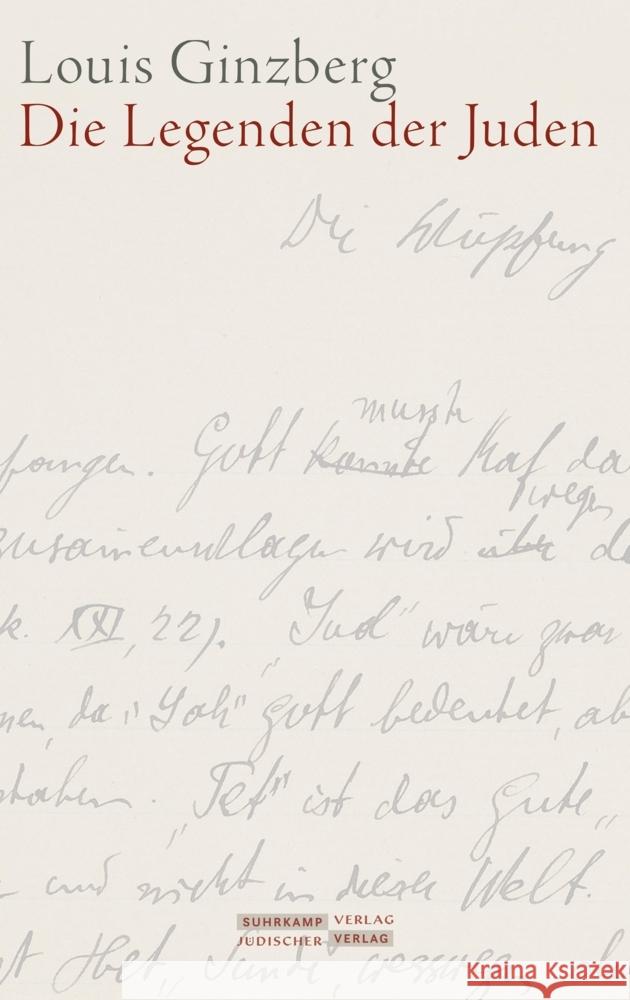 Louis Ginzberg
Die Legenden der Juden
Die Schöpfung
musste
fangen. Gott konnte Kaf da
wegen
zusammenschlagen wird über de
k. XXI, 22). „Jud“ wäre zwar
nen, da „Yoh“ Gott bedeutet, ab
staben. „Tet“ ist das Gute,
und nicht in dieser Welt.
SUHRKAMP VERLAG
JÜDISCHER VERLAG
Het, Sünde,